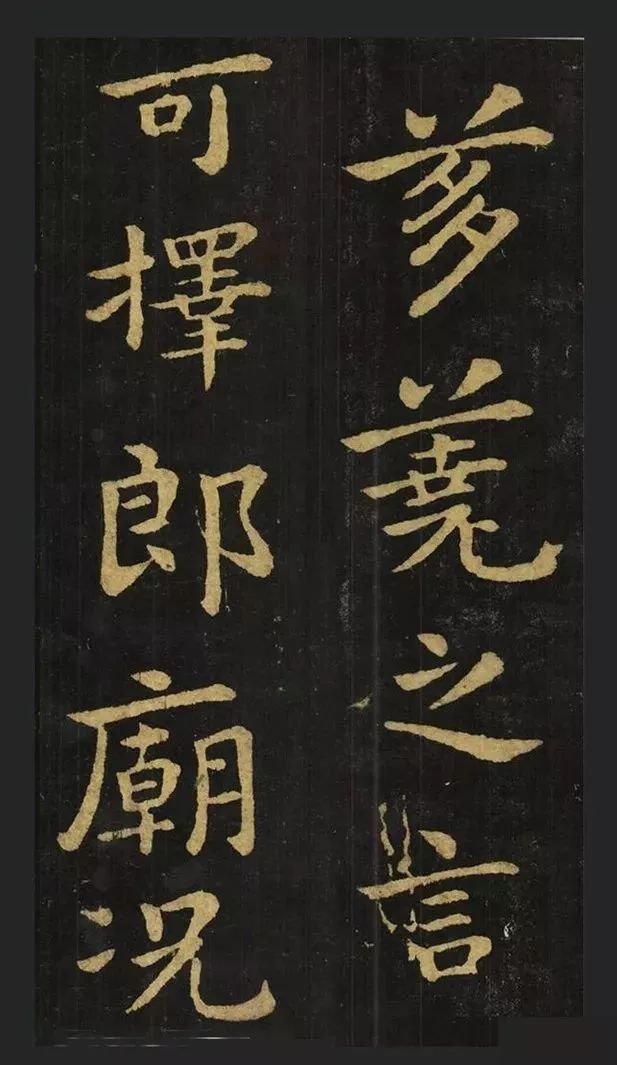 芻蕘之言
可擇郎廟況